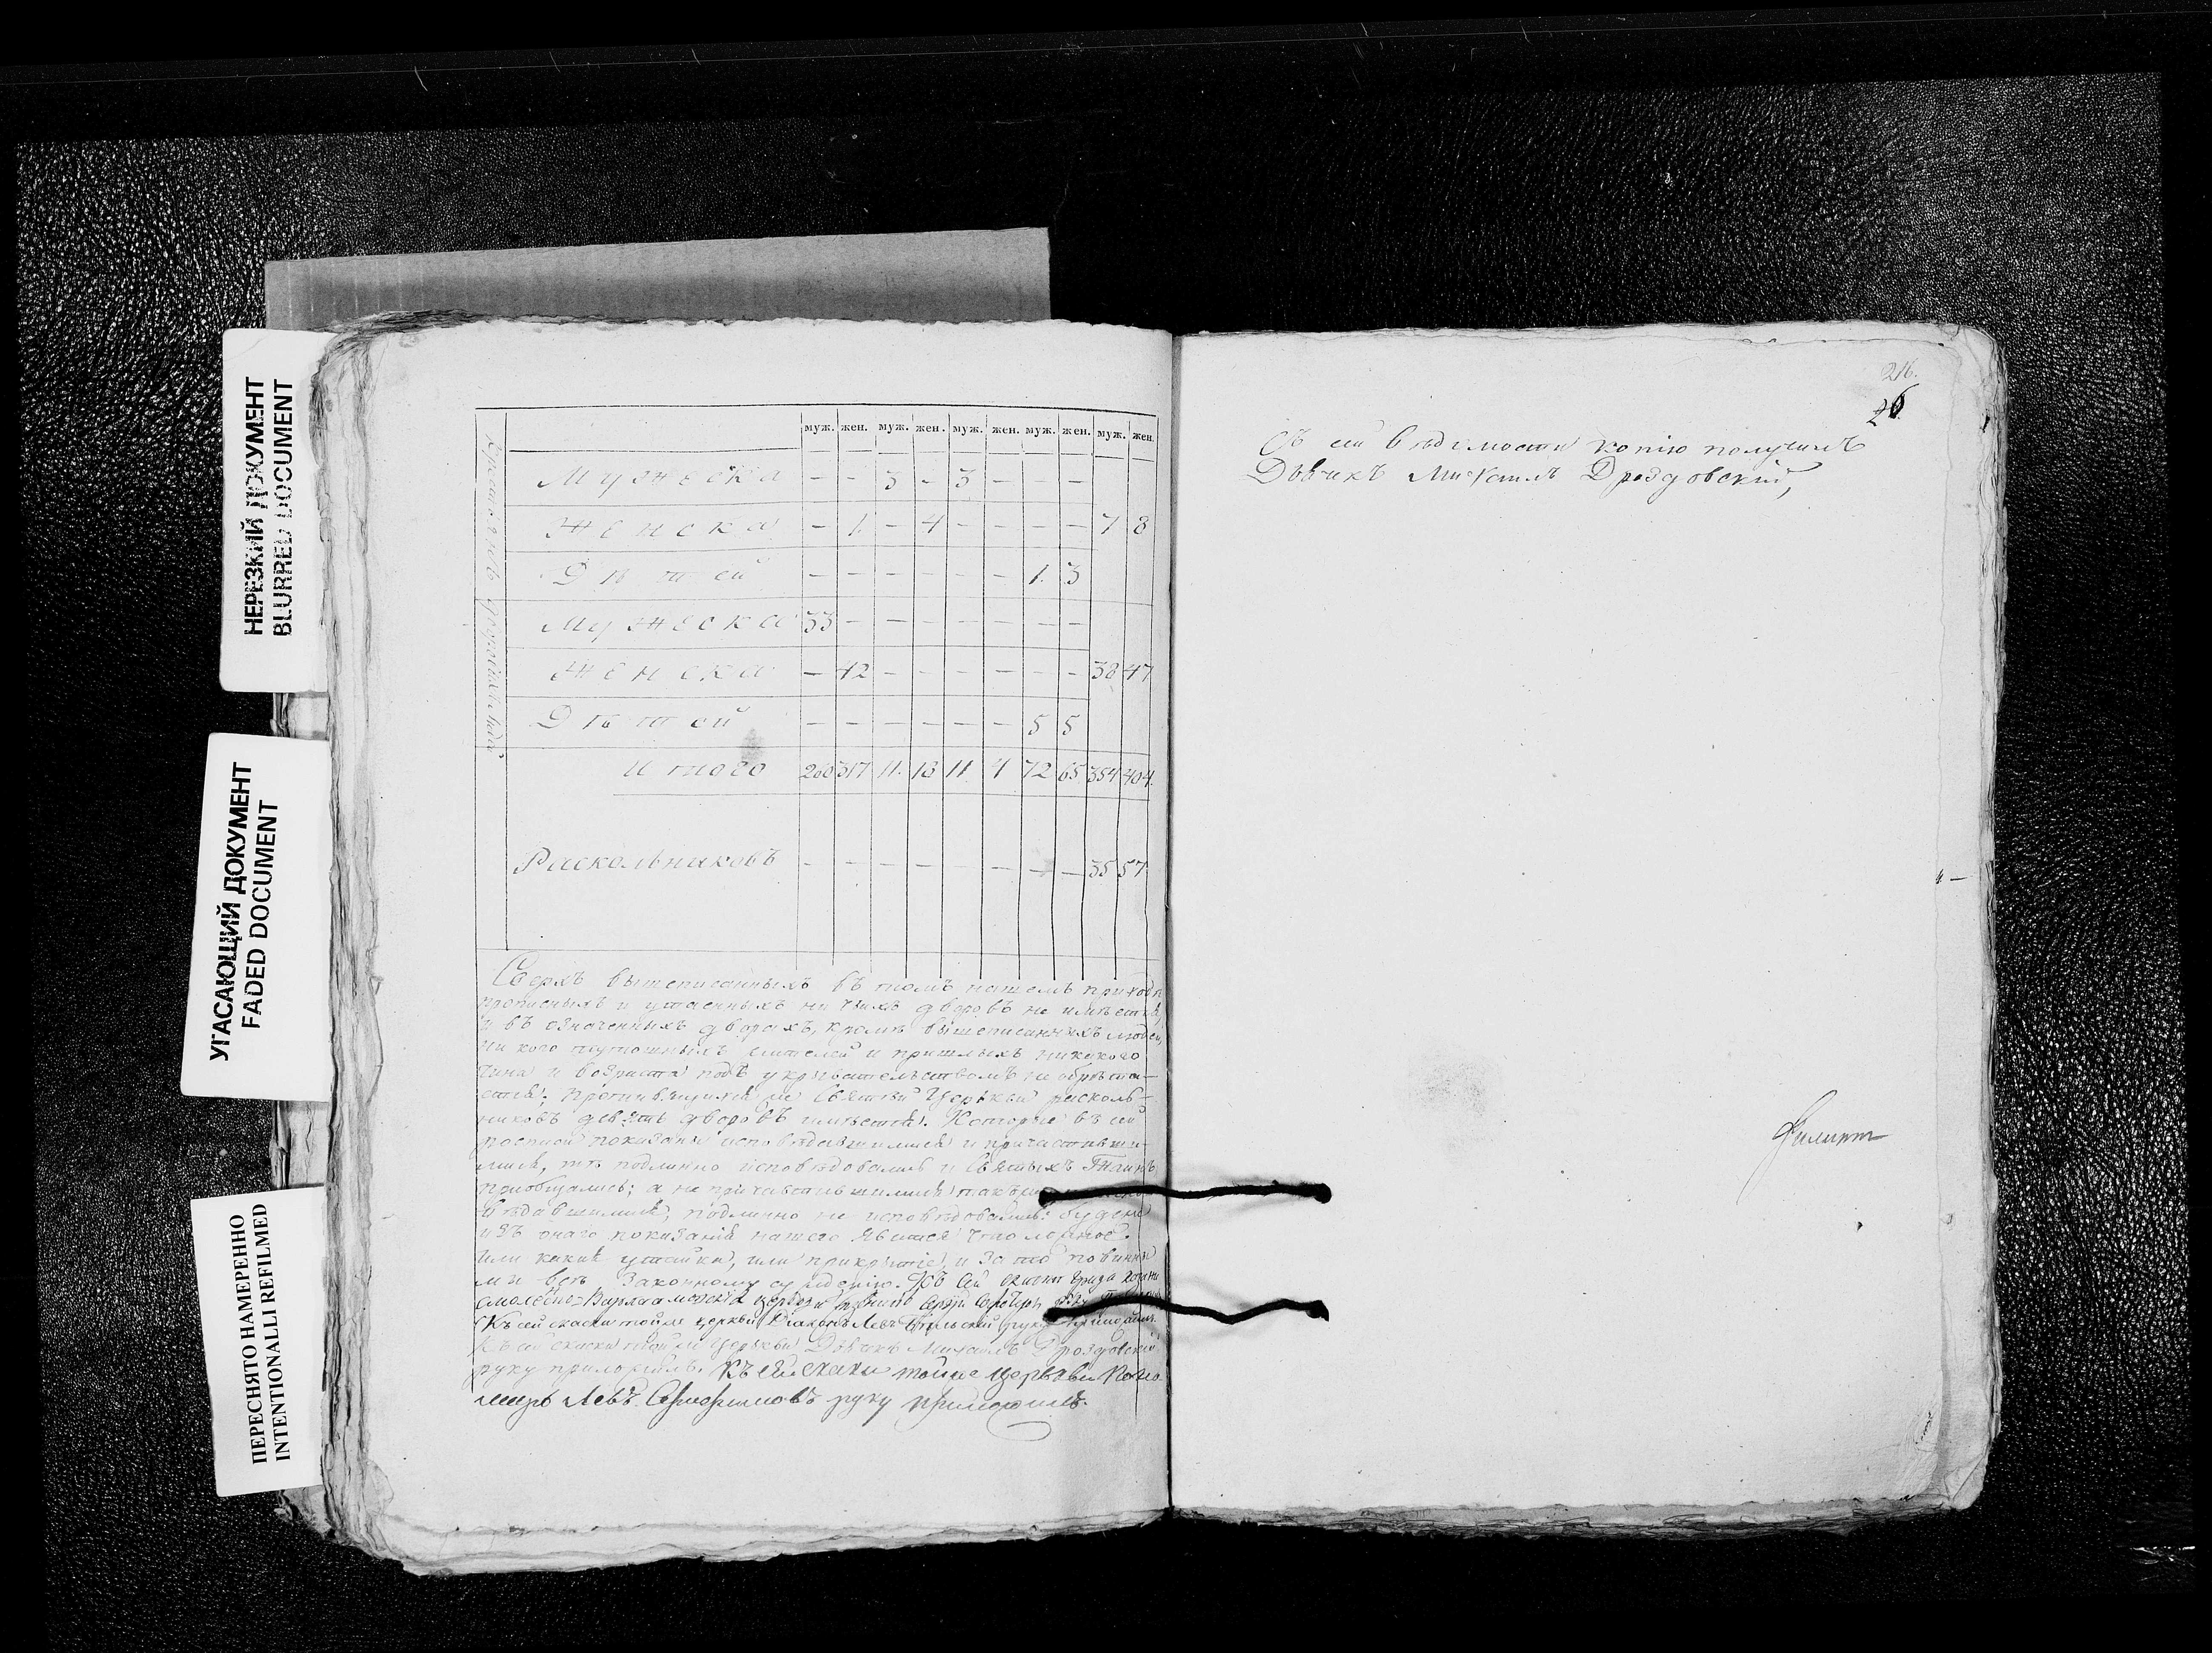 НЕРЕЗКИЙ ДОКУМЕНТ
BLURRED DOCUMENT
УГАСАЮЩИЙ ДОКУМЕНТ
FADED DOCUMENT
ПЕРЕСНЯТО НАМЕРЕННО
INTENTIONALLI REFILMED
муж. жен. муж. жен. муж. жен. муж. жен. муж. жен.
Мужеска – – 3 – 3 – – –
Женска – 1. – 4 – – – – 7 8
Дѣтей – – – – – – 1. 3
Мужеска 33 – – – – – – –
Женска – 42 – – – – – – 38 47
Дѣтей – – – – – – 5 5
Итого 260 317 11. 18 11. 4 72 65 354 404.
Раскольниковъ – – – – – – – 35 57
Сверхъ вышеписанныхъ въ томъ нашемъ приходѣ
прописныхъ и утаенныхъ ни чьихъ дворовъ не имѣется,
и въ означенныхъ дворахъ, кромѣ вышеписанныхъ людей,
ни кого тутошныхъ жителей и пришлыхъ никакого
чина и возраста подъ укрывательствомъ не обрѣта-
ется; противящихся же Святѣй Церькви расколь-
никовъ девять дворовъ имѣется. Которые въ сей
росписи показаны исповѣдавшимися и причастивши-
мися, тѣ подлинно исповѣдовались и Святыхъ Таинъ
приобщались; а не причастившимися
вѣдавшимися, подлинно не исповѣдовались: буде же
изъ онаго показанія нашего явится что ложное.
или какая утайка, или прикрытіе, и за то повинны
мы всѣ законному сужденію. Къ сей
церкви
Къ сей скаски тойже церкви Діаконъ Левъ руку приложилъ.
Къ сей скаски тойже церькви Дьячкъ Михаилъ Дроздовскій
руку приложилъ. Къ сей скаски тойже церькви Поно
марь Левъ руку приложилъ.
216.
26
Съ сей вѣдомости копію получилъ
Дьячкъ Михаилъ Дроздовскій,